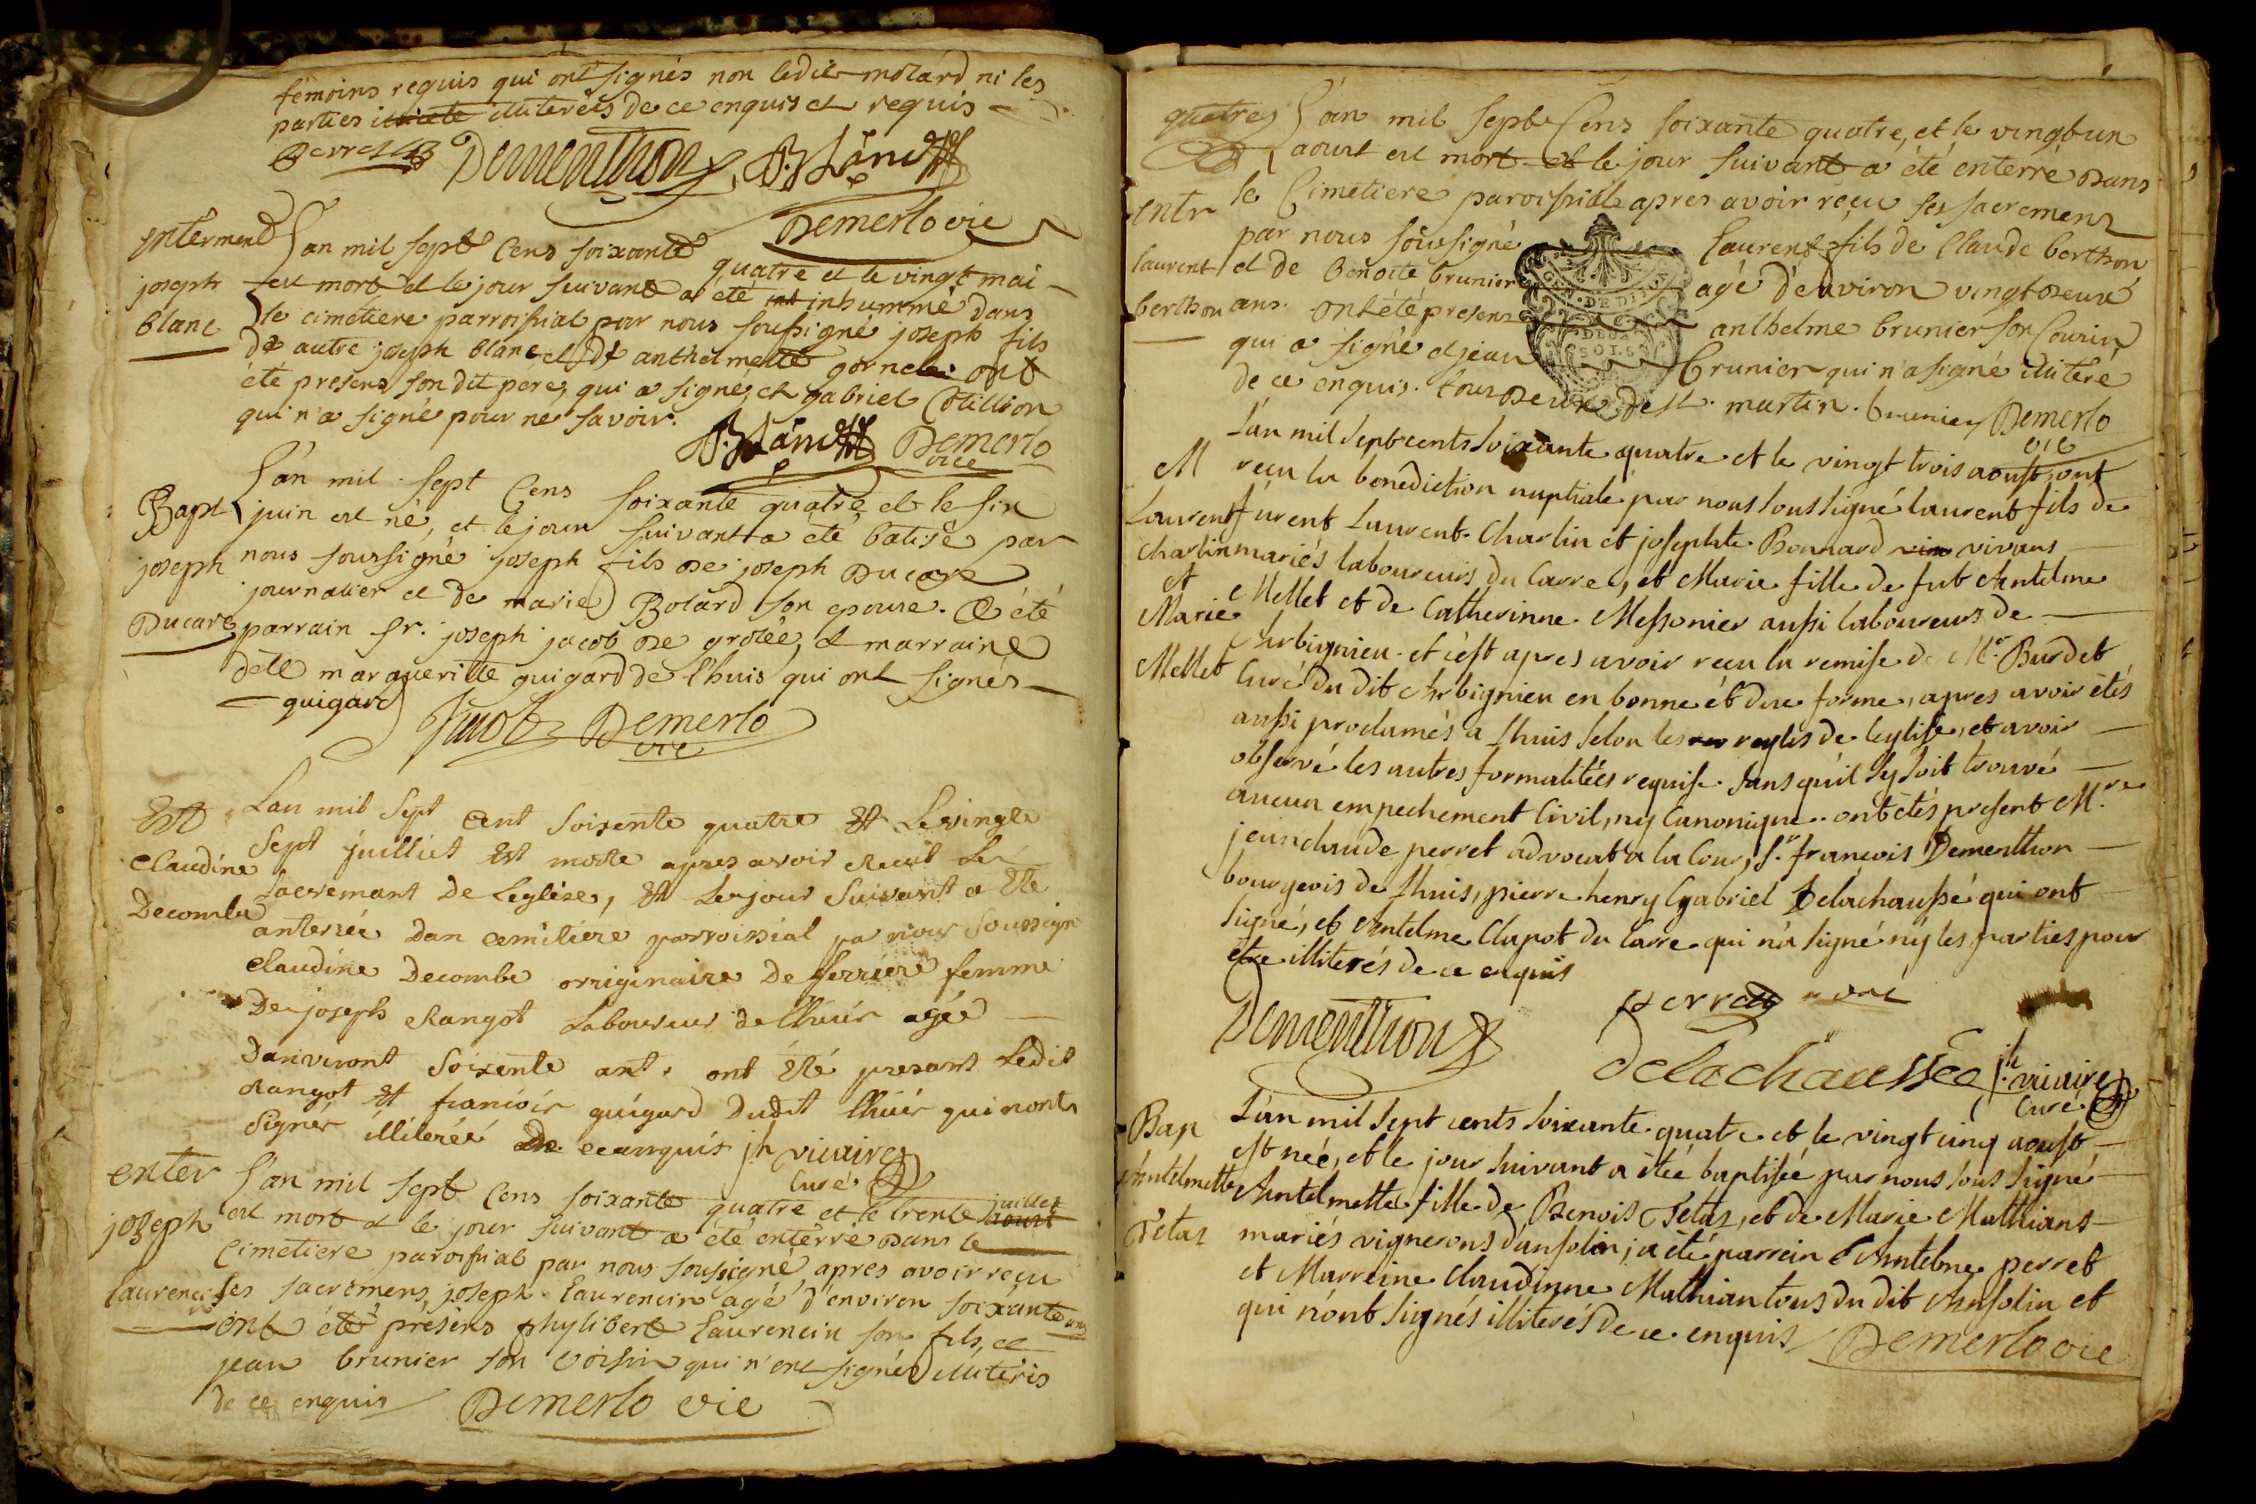 témoins requis qui ont signés non ledit molard ni les
parties illiterées de ce enquis et requis
perret Dementhon J. Blanc
Demerlo vic
enterment
joseph
blanc
L'an mil sept Cens soixante quatre et le vingt mai
est mort et le jour suivant a été inhummé dans
le cimetiere parroissial par nous soussigné joseph fils
de autre joseph blanc et de anthelmette gornet ont
été presens son dit pére, qui a signé, et gabriel Cotillion
qui n'a signé pour ne savoir.
J. Blanc Demerlo
vice
Bapt
joseph
Ducare
L'an mil sept Cens soixante quatre et le six
juin est né, et le jour suivant a été batisé par
nous soussigné joseph fils de joseph Ducare
journalier et de marie Bolard son epouse. a été
parrain sr. joseph jacob de grolée, et marraine
delle margueritte guigard de lhuis qui ont signés
guigard Jacob Demerlo
vic
Ent
Claudine
Decombe
Lan mil Sept Cent Soixente quatre Et Le vingte
Sept juilliet Est morte apres avoir Receut Les
Sacremant De Leglise, Et Le jour Suivant a Ete
anterrée Dan cemitiere parroissial pa nous Soussigné
Claudine Decombe orriginaire De ferriere femme
De joseph Rangot Laboureur de lhuis agée
Danviront Soixente ant. ont Eté presant Ledit
Rangot Et francois guigard Dudit lhuis qui nont
Signés illiterée De ceanquis jn vicaire
Curé
enter
joseph
laurencin
L'an mil sept Cens soixante quatre et le trente juillet
est mort et le jour suivant a été enterré dans le
Cimetiere paroissial par nous soussigné, apres avoir reçu
ses sacremens, joseph Laurencin agé d'environ soixante ans
ont été présens phylibert Laurencin son fils, et
jean brunier son voisin qui n'ont signés illitéris
de ce enquis Demerlo vic
quatres
entr
laurent
berthon
L'an mil sept Cens soixante quatre, et le vingt-un
aoust est mort et le jour suivant a été enterré dans
le Cimetiere paroissial apres avoir reçu ses sacremens
par nous soussigné Laurent fils de Claude berthon
et de Benoite brunier agé d'environ vingt deux
ans. ont été presens anthelme brunier son Cousin
qui a signé et jean brunier qui n'a signé illiteré
de ce enquis. tous deux de st. martin. brunier Demerlo
vic
GEN. DE DIJON
DEUX
SOLS
M
Laurent
Charlin
et
Marie
Mellet
L'an mil sept cents soixante quatre et le vingt trois aoust, ont
reçu la benediction nuptiale par nous sous signé laurent fils de
furent Laurent Charlin et josephte Bonnard vivans
mariés laboureurs du Carre, et Marie fille de fut Antelme
Mellet et de Catherinne Messonier aussi laboureurs de
Arbignieu. et c'est apres avoir reçu la remise de Mr. Burdet
Curé du dit Arbignieu en bonne et due forme, apres avoir étés
aussi proclamés a lhuis selon les regles de leglise, et avoir
observé les autres formalitées requise. sans qu'il s'y soit trouvé
aucun empechement Civil, ny Canonique. ont étés present Mre.
jeanclaude perret advocat a la Cour, Sr. francois Dementhon
bourgeois de lhuis, pierre henry Gabriel Delachaussé qui ont
signé, et Antelme Clapot du Carre qui n'a signé ny les parties pour
être illiterés de ce enquis
Dementhon perret
Delachaussée
vicaire
Curé
Bap
Antelmette
Tetaz
L'an mil sept cents soixante quatre et le vingt cinq aoust
est née, et le jour suivant a étée baptisée par nous sous signé
Antelmette fille de Benois Tetaz, et de Marie Mathians
mariés vignerons d'ansolin; a été parrain Antelme perret
et Marreine Claudinne Mathian tous du dit Ansolin et
qui n'ont signés illiterés de ce enquis Demerlo vic